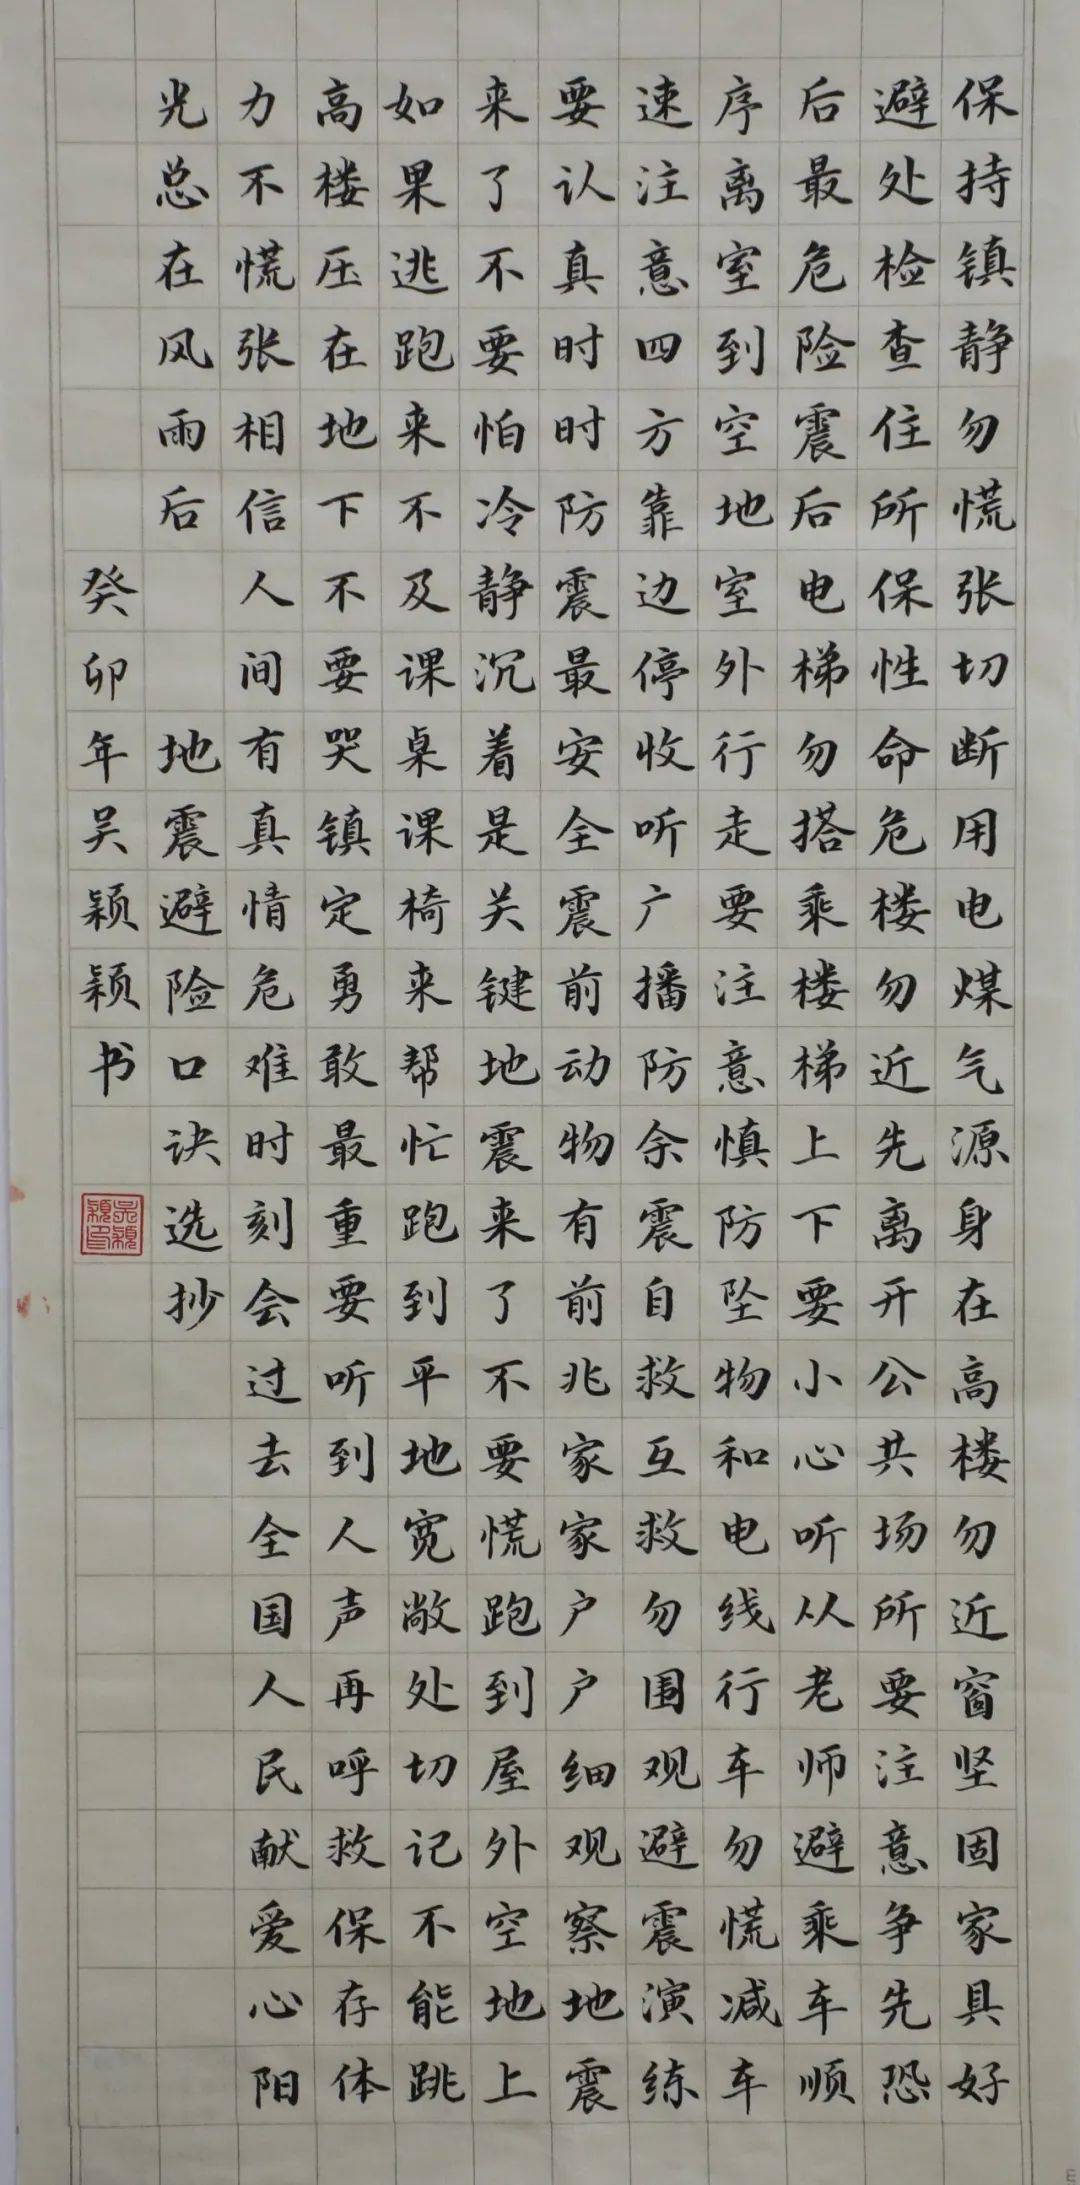 保持镇静勿慌张切断用电煤气源身在高楼勿近窗坚固家具好
避处检查住所保性命危楼勿近先离开公共场所要注意争先恐
后最危险震后电梯勿搭乘楼梯上下要小心听从老师避乘车顺
序离室到空地室外行走要注意慎防坠物和电线行车勿慌减车
速注意四方靠边停收听广播防余震自救互救勿围观避震演练
要认真时时防震最安全震前动物有前兆家家户户细观察地震
来了不要怕冷静沉着是关键地震来了不要慌跑到屋外空地上
如果逃跑来不及课桌课椅来帮忙跑到平地宽敞处切记不能跳
高楼压在地下不要哭镇定勇敢最重要听到人声再呼救保存体
力不慌张相信人间有真情危难时刻会过去全国人民献爱心阳
光总在风雨后 地震避险口诀选抄
癸卯年吴颖颖书
吴颖颖印